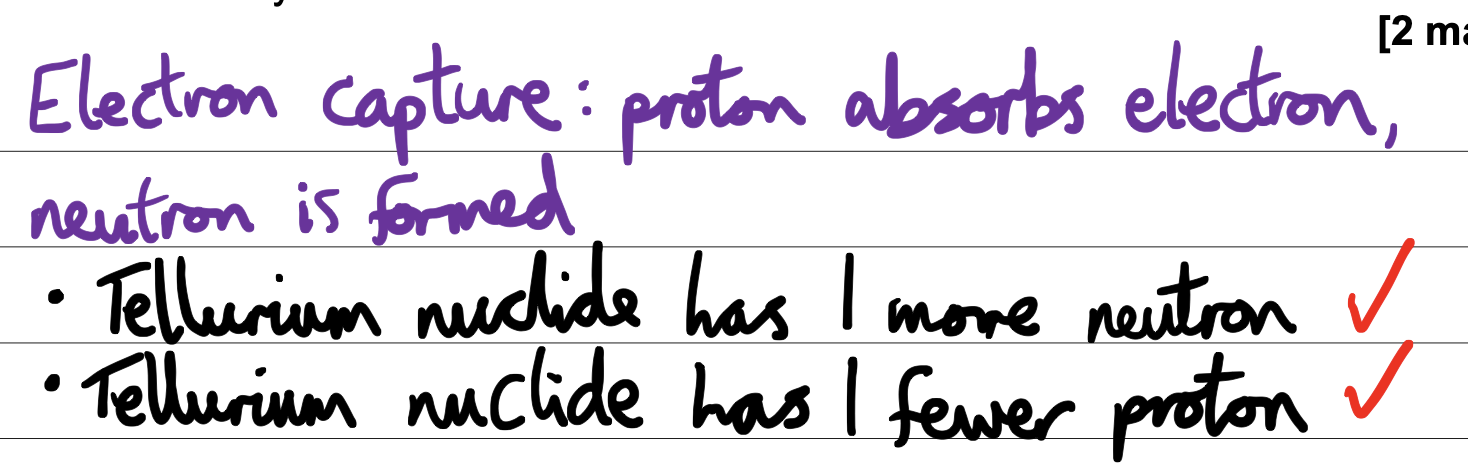 [2 ma
Electron capture: proton absorbs electron,
neutron is formed
• Tellurium nuclide has 1 more neutron ✓
• Tellurium nuclide has 1 fewer proton ✓